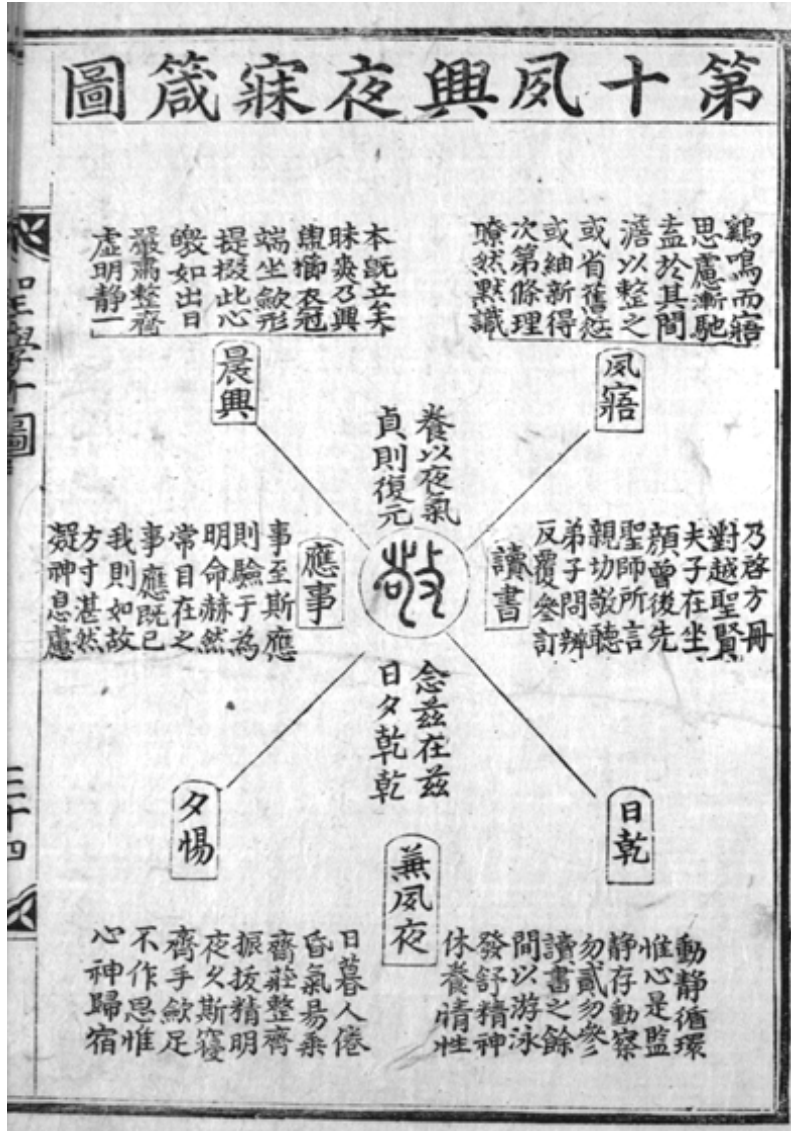 第十夙興夜寐箴圖
鷄鳴而寤
思慮漸馳
盍於其間
澹以整之
或省舊愆
或紬新得
次第條理
瞭然默識
夙寤
本既立矣
昧爽乃興
盥櫛衣冠
端坐斂形
提掇此心
皦如出日
嚴肅整齊
虛明靜一
晨興
養以夜氣
貞則復元
敬
乃啓方冊
對越聖賢
夫子在坐
顔曾後先
聖師所言
親切敬聽
弟子問辨
反覆參訂
讀書
應事
事至斯應
則驗于為
明命赫然
常目在之
事應既已
我則如故
方寸湛然
凝神息慮
念茲在茲
日夕乾乾
日乾
夕惕
兼夙夜
動靜循環
惟心是監
靜存動察
勿貳勿參
讀書之餘
間以游泳
發舒精神
休養情性
日暮人倦
昏氣易乘
齋莊整齊
振拔精明
夜久斯寢
齊手斂足
不作思惟
心神歸宿
聖學十圖
三十四